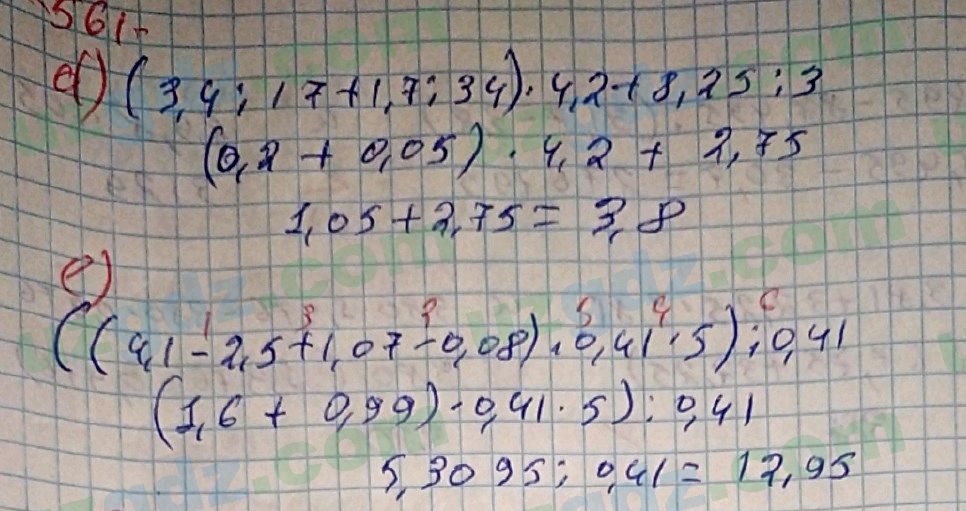 561.
d) (3,4 : 17 + 1,7 : 34) · 4,2 + 8,25 : 3
(0,2 + 0,05) · 4,2 + 2,75
1,05 + 2,75 = 3,8
e)
1 3 2 5 4 6
((4,1 - 2,5 + 1,07 - 0,08) · 0,41 · 5) : 0,41
(1,6 + 0,99) · 0,41 · 5) : 0,41
5,3095 : 0,41 = 12,95